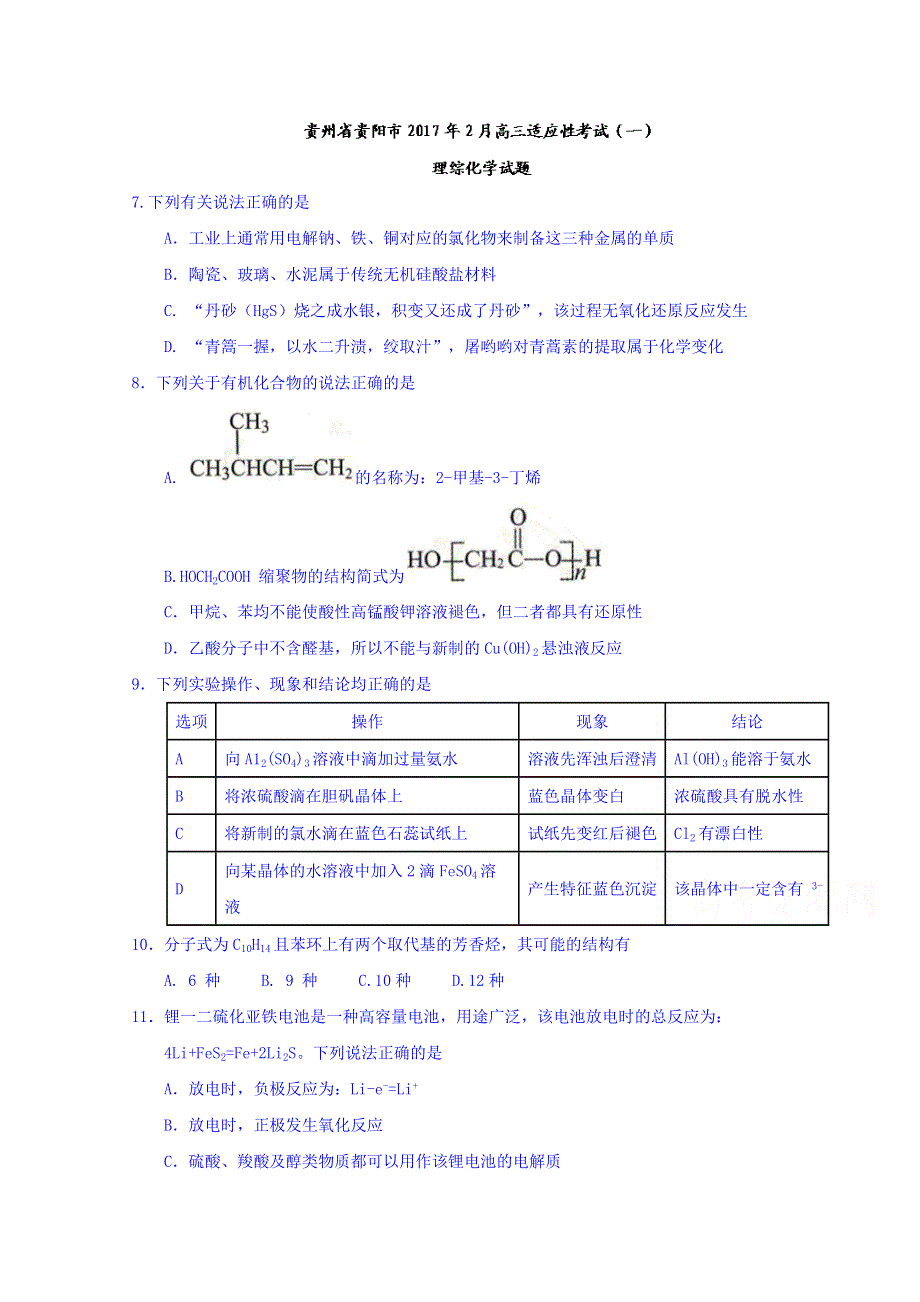 贵州省贵阳市2017年2月高三适应性考试（一）
理综化学试题
7.下列有关说法正确的是
A．工业上通常用电解钠、铁、铜对应的氯化物来制备这三种金属的单质
B．陶瓷、玻璃、水泥属于传统无机硅酸盐材料
C. “丹砂（HgS）烧之成水银，积变又还成了丹砂”，该过程无氧化还原反应发生
D. “青篙一握，以水二升渍，绞取汁”，屠哟哟对青蒿素的提取属于化学变化
8．下列关于有机化合物的说法正确的是
CH₃
A. CH₃CHCH=CH₂的名称为：2-甲基-3-丁烯
O
B.HOCH₂COOH 缩聚物的结构简式为HO-[CH₂C-O-]ₙH
C．甲烷、苯均不能使酸性高锰酸钾溶液褪色，但二者都具有还原性
D．乙酸分子中不含醛基，所以不能与新制的Cu(OH)₂悬浊液反应
9．下列实验操作、现象和结论均正确的是
选项 操作 现象 结论
A 向Al₂(SO₄)₃溶液中滴加过量氨水 溶液先浑浊后澄清 Al(OH)₃能溶于氨水
B 将浓硫酸滴在胆矾晶体上 蓝色晶体变白 浓硫酸具有脱水性
C 将新制的氯水滴在蓝色石蕊试纸上 试纸先变红后褪色 Cl₂有漂白性
D 向某晶体的水溶液中加入2滴FeSO₄溶液 产生特征蓝色沉淀 该晶体中一定含有 ³⁻
10．分子式为C₁₀H₁₄且苯环上有两个取代基的芳香烃，其可能的结构有
A. 6 种 B. 9 种 C.10 种 D.12 种
11．锂一二硫化亚铁电池是一种高容量电池，用途广泛，该电池放电时的总反应为：
4Li+FeS₂=Fe+2Li₂S。下列说法正确的是
A．放电时，负极反应为：Li-e⁻=Li⁺
B．放电时，正极发生氧化反应
C．硫酸、羧酸及醇类物质都可以用作该锂电池的电解质